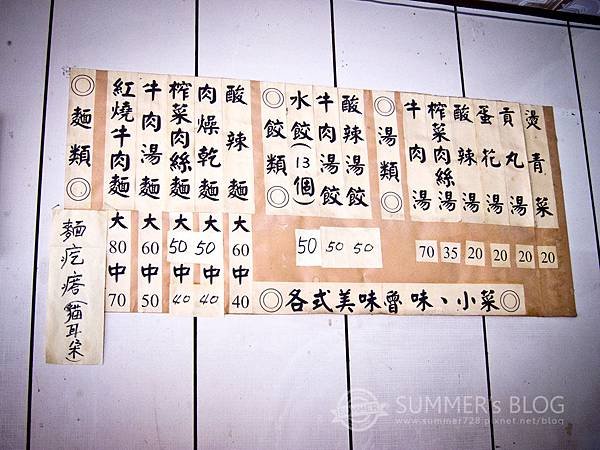 ◎麵類◎
紅燒牛肉麵 大80 中70
牛肉湯麵 大60 中50
榨菜肉絲麵 大50 中40
肉燥乾麵 大50 中40
酸辣麵 大60 中40
◎餃類◎
水餃(13個) 50
牛肉湯餃 50
酸辣湯餃 50
◎湯類◎
牛肉湯 70
榨菜肉絲湯 35
酸辣湯 20
蛋花湯 20
貢丸湯 20
燙青菜 20
◎各式美味魯味、小菜◎
麵疙瘩(貓耳朵)
SUMMER's BLOG
www.summer728.pixnet.net/blog